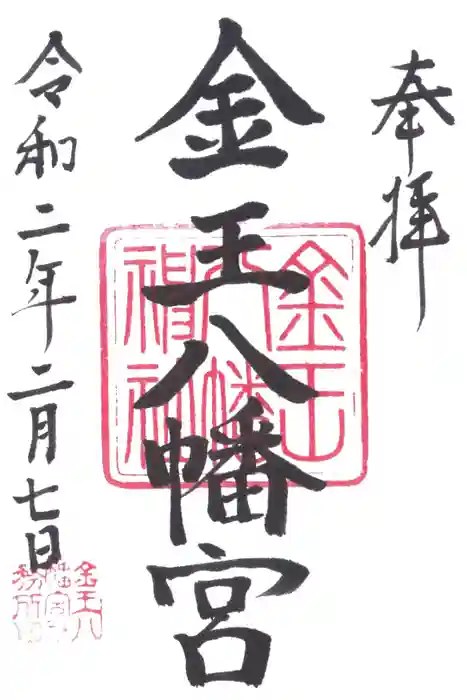 奉拝
金王八幡宮
金王八幡神社
令和二年二月七日
金王八幡宮社務所印